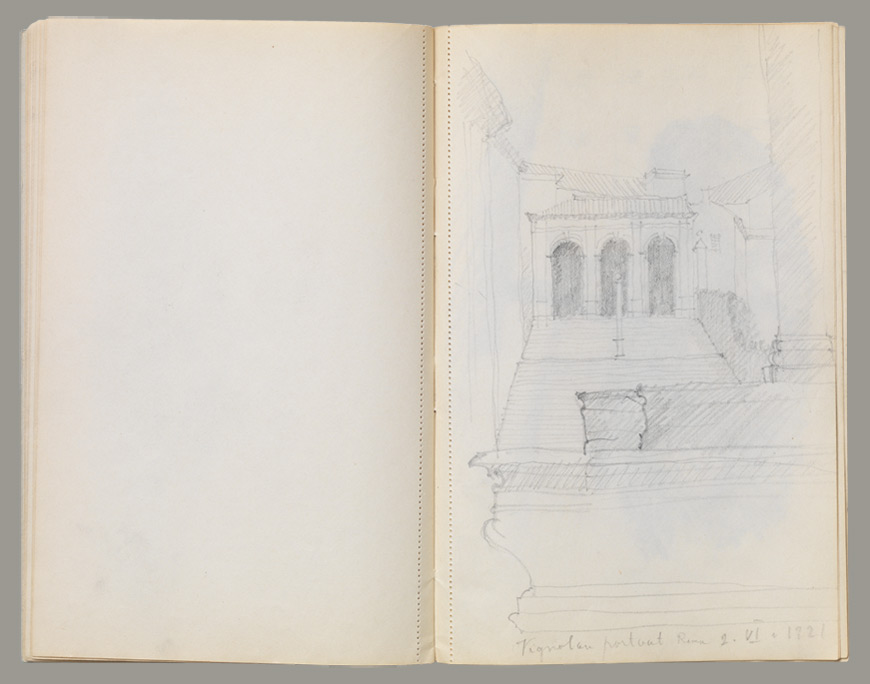 Vignolan portaat Roma 2. VI. 1921